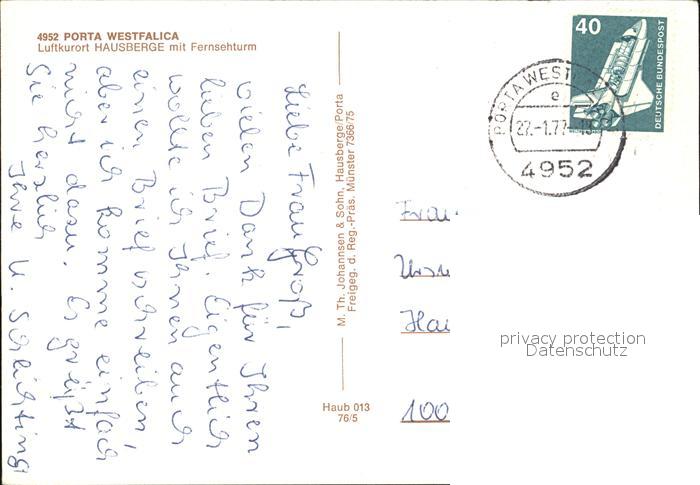 4952 PORTA WESTFALICA
Luftkurort HAUSBERGE mit Fernsehturm
Liebe Frau Groß,
vielen Dank für Ihren
lieben Brief. Eigentlich
wollte ich Ihnen auch
einen Brief schreiben,
aber ich komme einfach
nicht dazu. Es grüßt
Sie herzlich
Ihre U. Schlichting
M. Th. Johannsen & Sohn, Hausberge/Porta
Freigeg. d. Reg.-Präs. Münster 7366/75
Haub 013
76/5
40
DEUTSCHE BUNDESPOST
PORTA WEST
e
27.-1.77
4952
Frau
Hai
100
privacy protection
Datenschutz